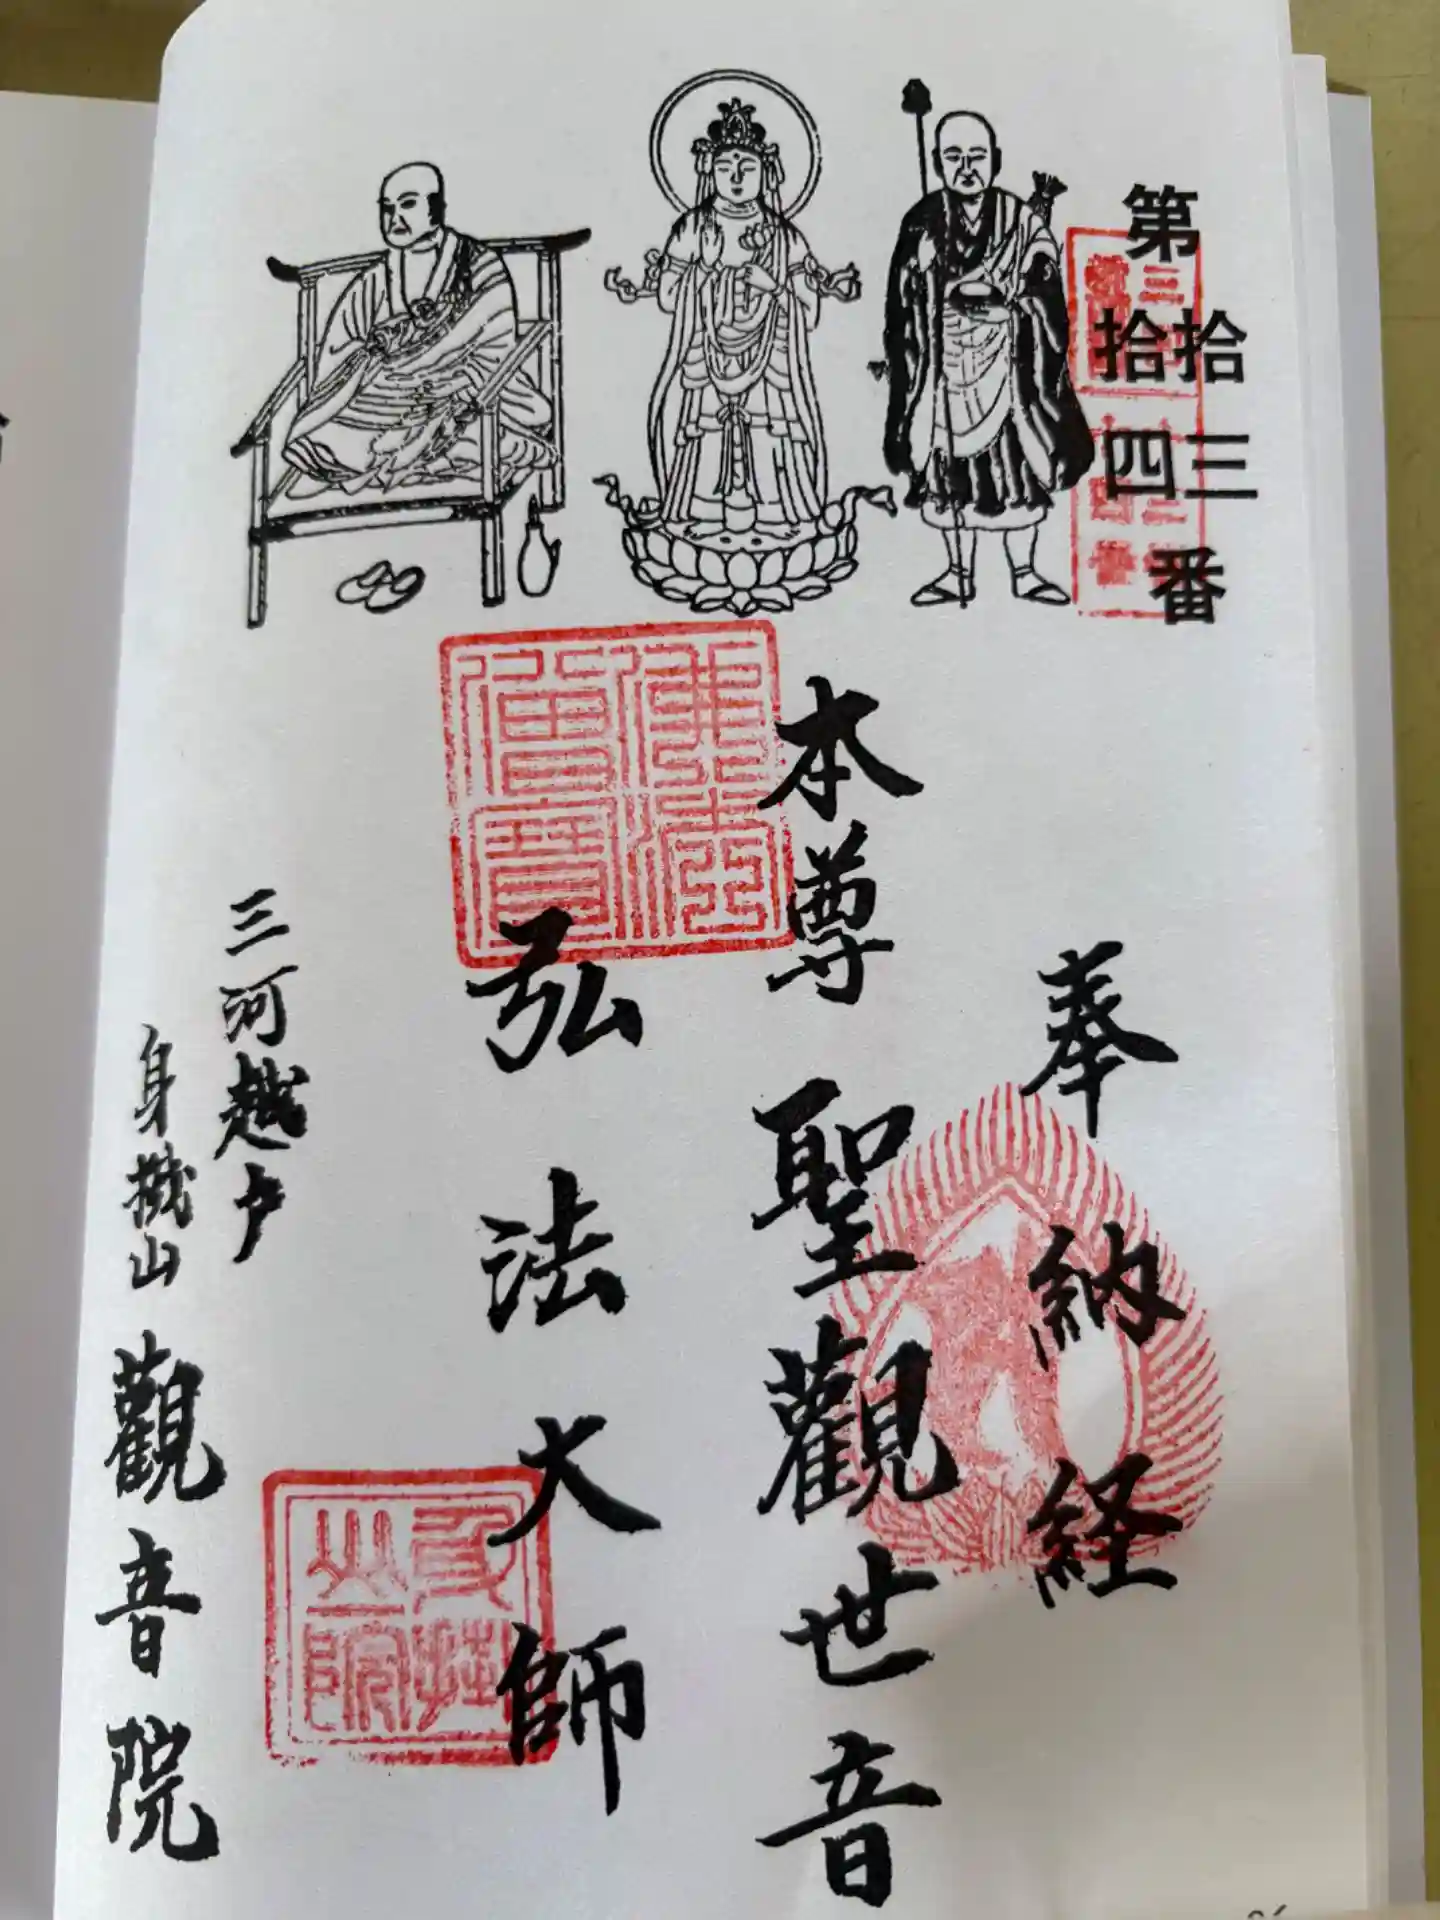 第
拾三
拾四
番
奉納経
本尊聖觀世音
弘法大師
佛法僧寳
三河越戸
身掛山觀音院